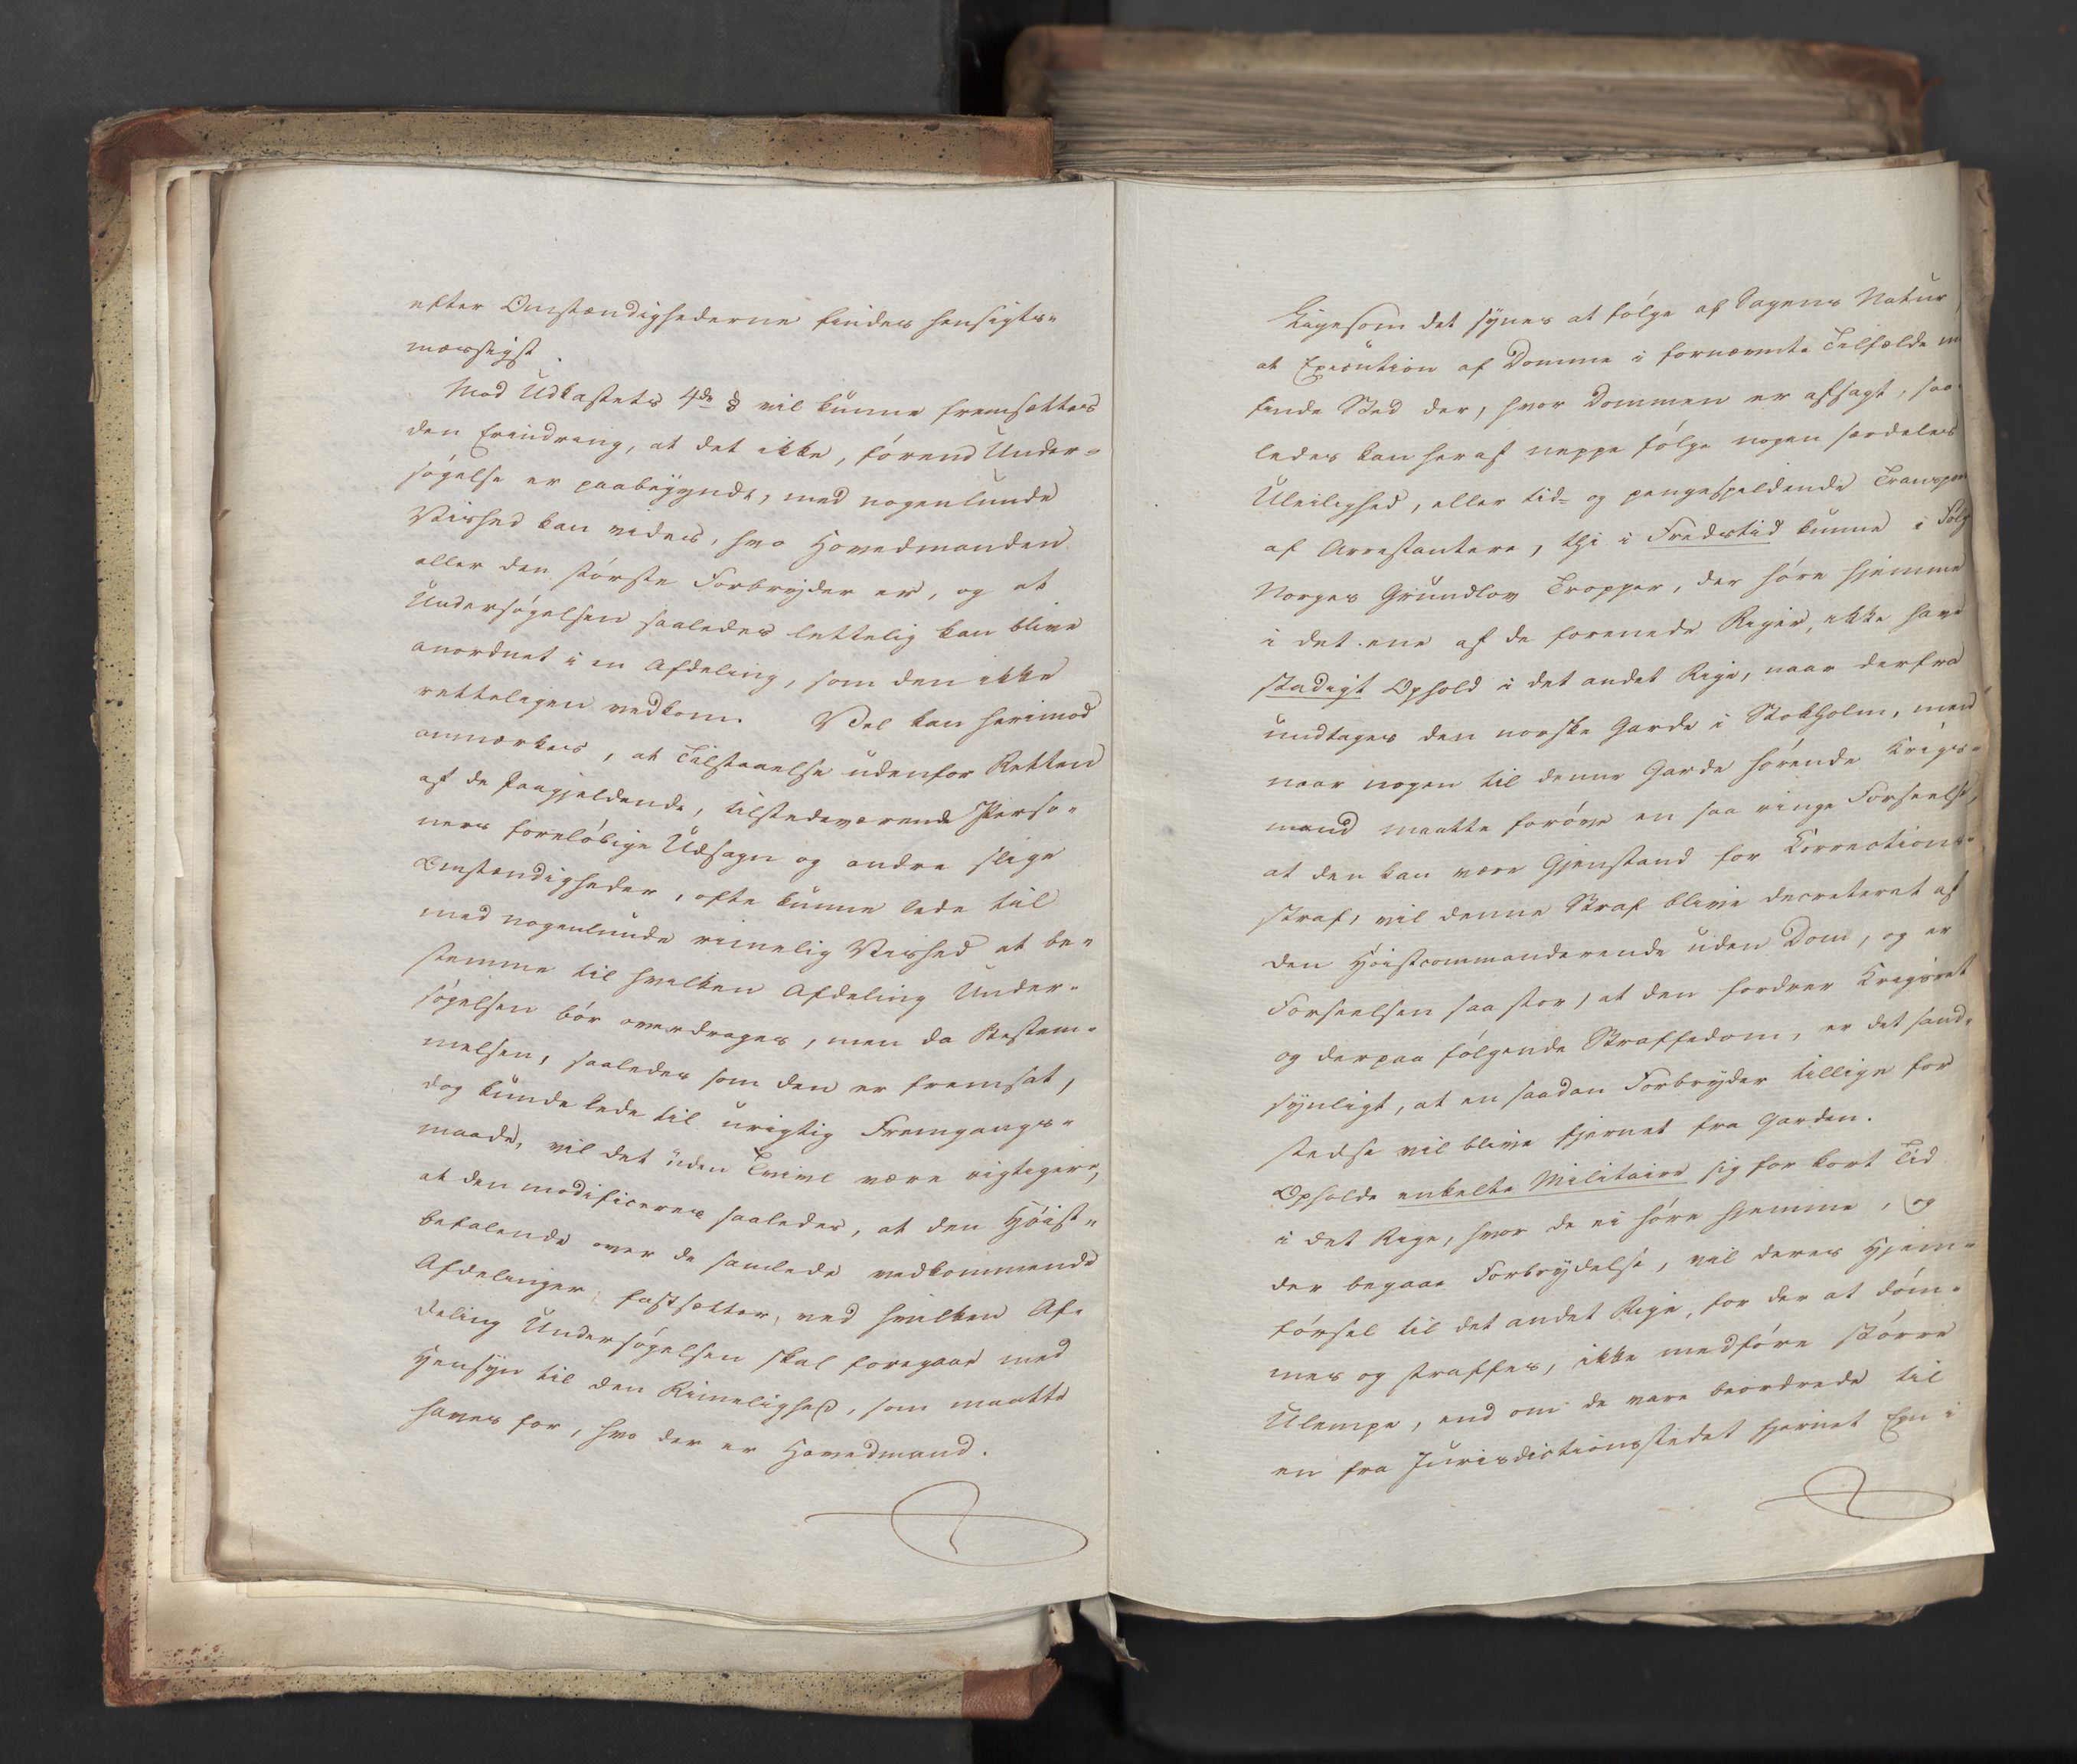 efter Omstændighederne findes hensigts-
mæssigst.
Mod Udkastets 4de § vil kunne fremsættes
den Erindring, at det ikke, førend Under-
søgelse er paabegyndt, med nogenlunde
Vished kan vides, hvo Hovedmanden
eller den største Forbryder er, og at
Undersøgelsen saaledes lettelig kan blive
anordnet i en Afdeling, som den ikke
retteligen vedkom. Vel kan herimod
anmærkes, at Tilstaaelse udenfor Retten
af de Paagjeldende, tilstedeværende Perso-
ners foreløbige Udsagn og andre slige
Omstændigheder, ofte kunne lede til
med nogenlunde rimelig Vished at be-
stemme til hvilken Afdeling Under-
søgelsen bør overdrages, men da Bestem-
melsen, saaledes som den er fremsat,
dog kunde lede til urigtig Fremgangs-
maade, vil det uden Tvivl være rigtigere,
at den modificeres saaledes, at den Høist-
befalende over de samlede vedkommende
Afdelinger fastsætter, ved hvilken Af-
deling Undersøgelsen skal foregaae med
Hensyn til den Rimelighed, som maatte
haves for, hvo der er Hovedmand.
Ligesom det synes at følge af Sagens Natur,
at Execution af Domme i fornævnte Tilfælde
finde Sted der, hvor Dommen er afsagt, saa-
ledes kan heraf neppe følge nogen særdeles
Uleilighed, eller tid- og pengespildende
af Arrestantere, thi i Fredstid kunne i Følg
Norges Grundlov Tropper, der høre hjemme
i det ene af de forenede Riger, ikke have
stadigt Ophold i det andet Rige, naar derfra
undtages den norske Garde i Stokholm, men
naar nogen til denne Garde hørende Krigs-
mand maatte forøve en saa ringe Forseelse,
at den kan være Gjenstand for Corrections-
straf, vil denne Straf blive decreteret af
den Høistcommanderende uden Dom, og er
Forseelsen saa stor, at den fordrer Krigsret
og derpaa følgende Straffedom, er det sand-
synligt, at en saadan Forbryder tillige for
stedse vil blive fjernet fra Garden.
Opholde enkelte Militaire sig for kort Tid
i det Rige, hvor de ei høre hjemme, og
der begaae Forbrydelse, vil deres Hjem-
førsel til det andet Rige, for der at døm-
mes og straffes, ikke medføre større
Ulempe, end om de vare beordrede til
en fra Jurisdictionsstedet fjernet